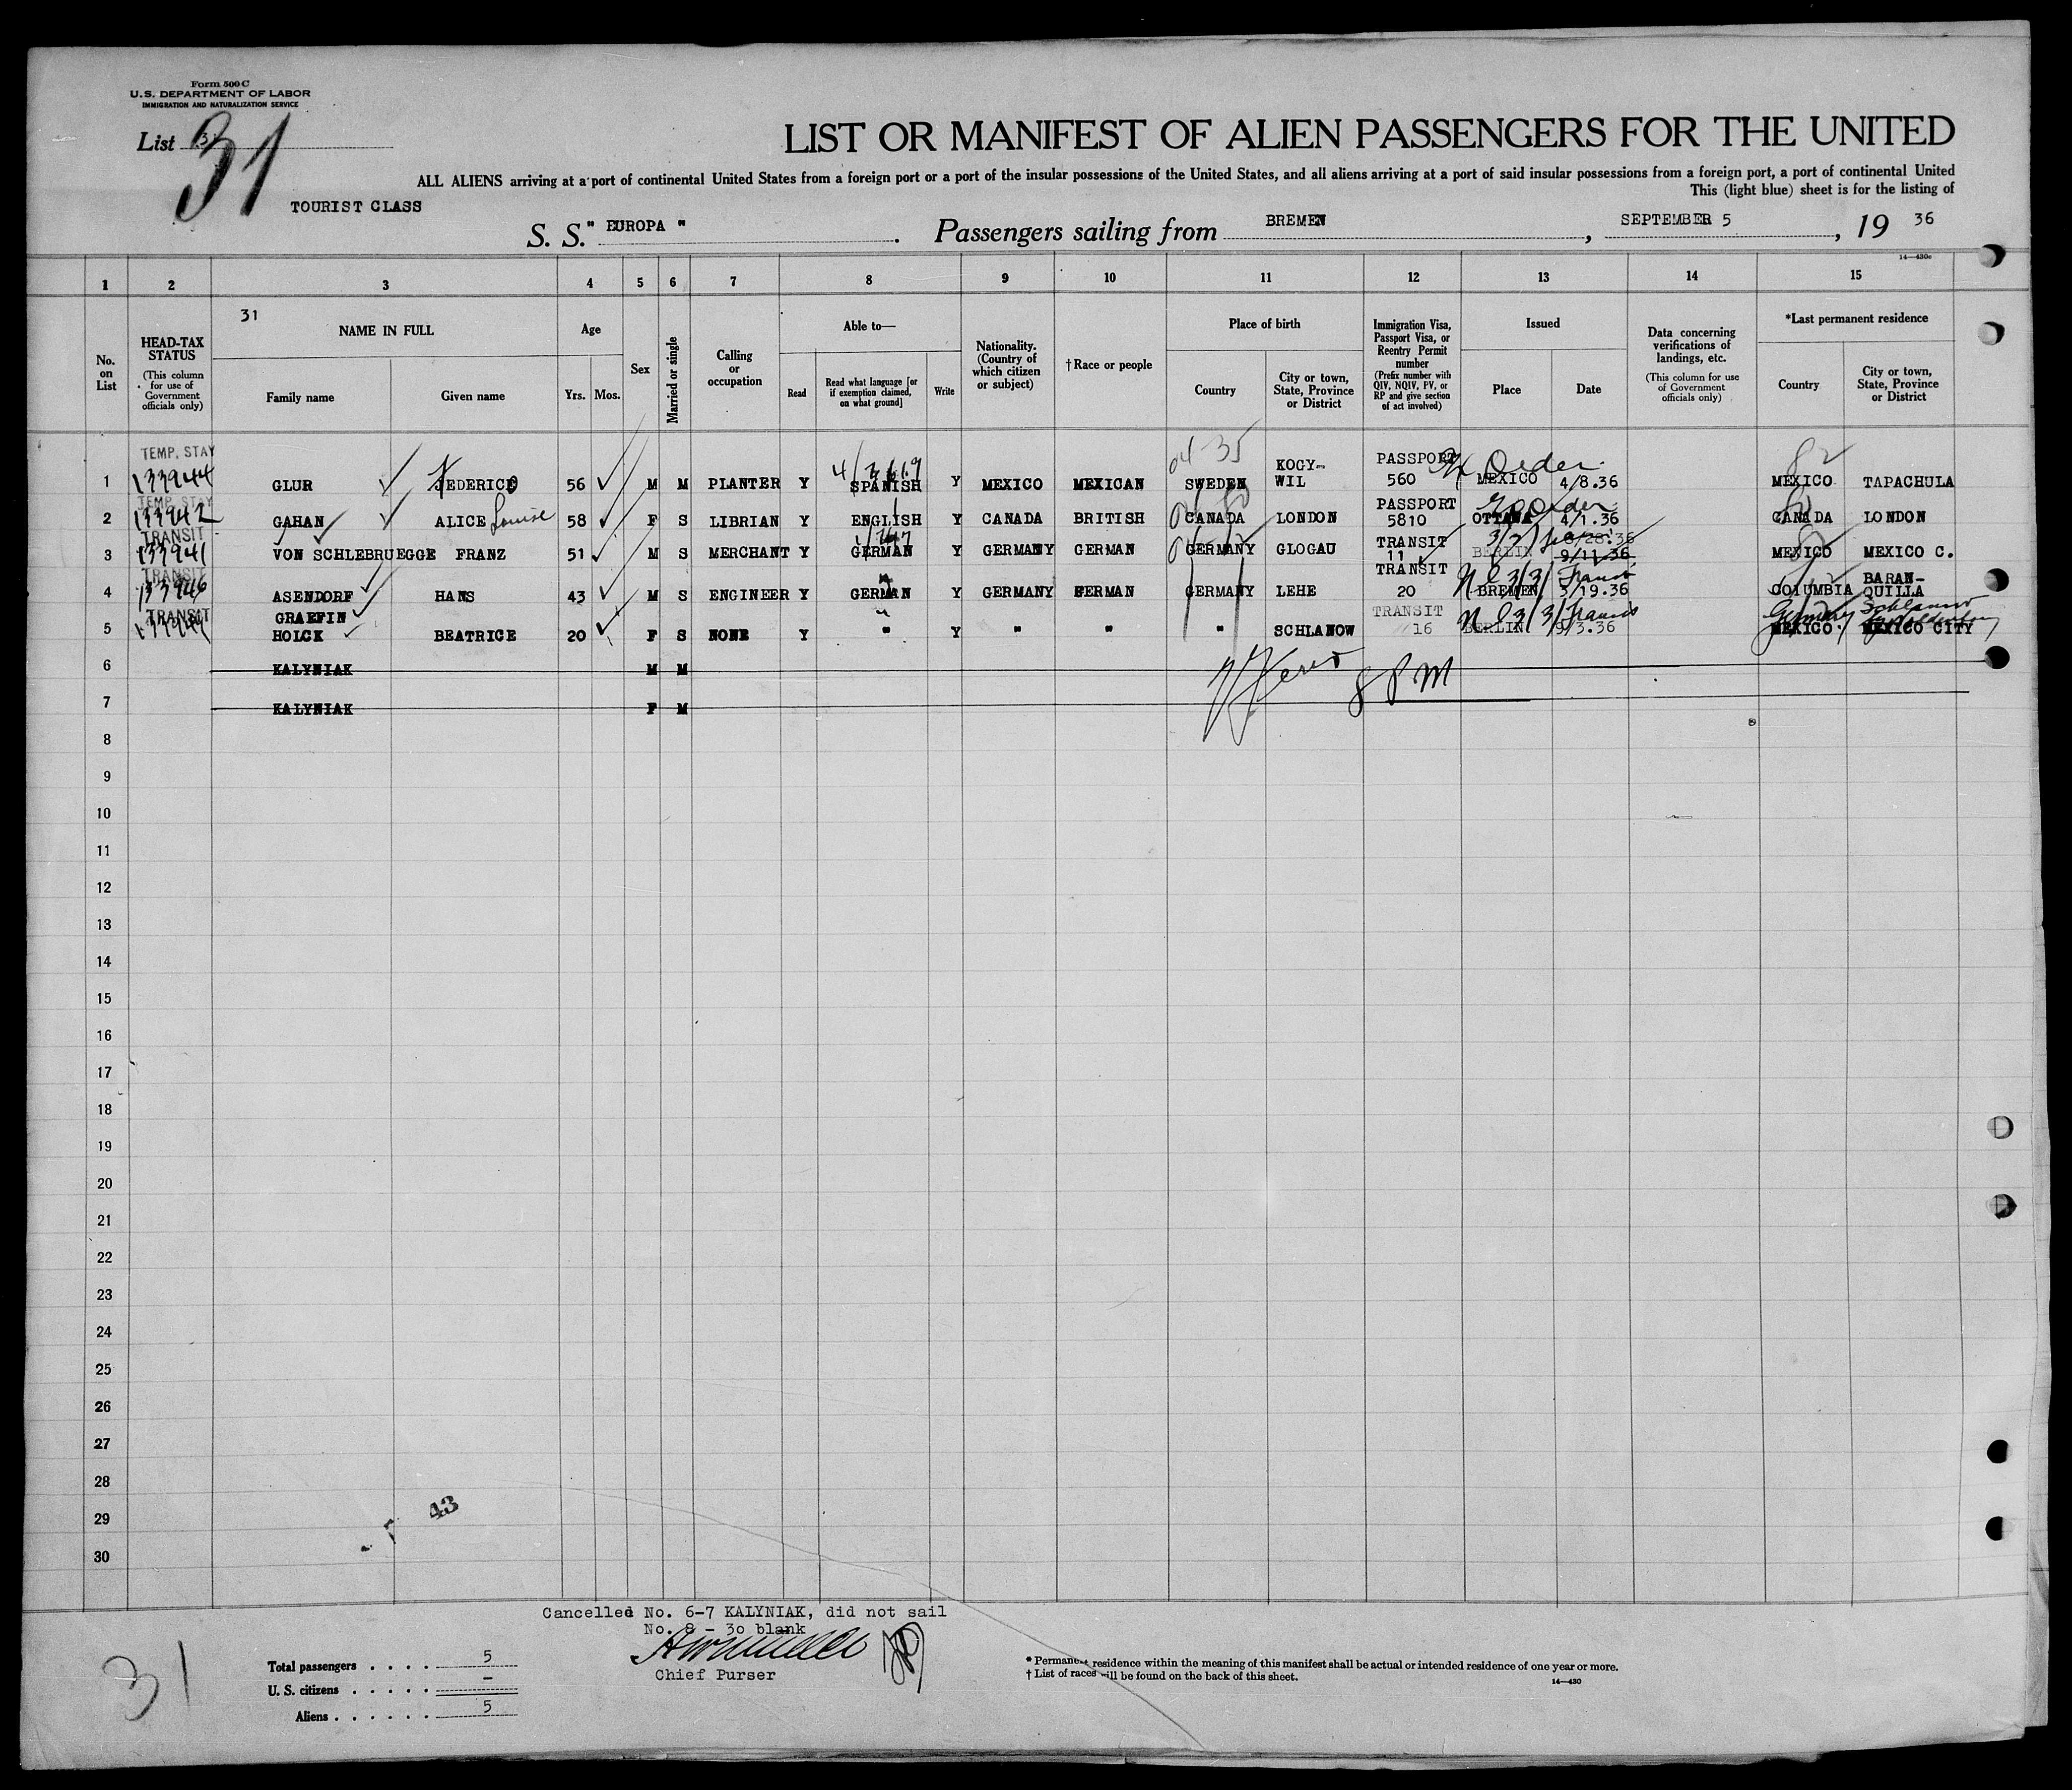 Form 500 C
U.S. DEPARTMENT OF LABOR
IMMIGRATION AND NATURALIZATION SERVICE
List 31
31
LIST OR MANIFEST OF ALIEN PASSENGERS FOR THE UNITED
ALL ALIENS arriving at a port of continental United States from a foreign port or a port of the insular possessions of the United States, and all aliens arriving at a port of said insular possessions from a foreign port, a port of continental United
This (light blue) sheet is for the listing of
TOURIST CLASS
S. S. " EUROPA " . Passengers sailing from BREMEN , SEPTEMBER 5 , 19 36
14—430c
1 2 3 4 5 6 7 8 9 10 11 12 13 14 15
No. on List
HEAD-TAX STATUS
(This column for use of Government officials only)
31
NAME IN FULL
Family name
Given name
Age
Yrs. Mos.
Sex
Married or single
Calling or occupation
Able to—
Read
Read what language [or if exemption claimed, on what ground]
Write
Nationality. (Country of which citizen or subject)
†Race or people
Place of birth
Country
City or town, State, Province or District
Immigration Visa, Passport Visa, or Reentry Permit number
(Prefix number with QIV, NQIV, PV, or RP and give section of act involved)
Issued
Place
Date
Data concerning verifications of landings, etc.
(This column for use of Government officials only)
*Last permanent residence
Country
City or town, State, Province or District
TEMP. STAY
1 133944 GLUR FEDERICO 56 M M PLANTER Y SPANISH Y MEXICO MEXICAN SWEDEN KOGY-WIL PASSPORT 560 MEXICO 4/8.36 MEXICO TAPACHULA
TEMP. STAY
2 133942 GAHAN ALICE Louise 58 F S LIBRIAN Y ENGLISH Y CANADA BRITISH CANADA LONDON PASSPORT 5810 OTTAWA 4/1.36 CANADA LONDON
TRANSIT
3 133941 VON SCHLEBRUEGGE FRANZ 51 M S MERCHANT Y GERMAN Y GERMANY GERMAN GERMANY GLOGAU TRANSIT 11 BERLIN 9/11.36 MEXICO MEXICO C.
TRANSIT
4 133946 ASENDORF HANS 43 M S ENGINEER Y GERMAN Y GERMANY FERMAN GERMANY LEHE TRANSIT 20 BREMEN 3/19.36 COIUMBIA BARAN-QUILLA
TRANSIT
5 GRAEFIN HOLCK BEATRICE 20 F S NONE Y " Y " " " SCHLANOW TRANSIT 16 BERLIN 9/3.36 Germany MEXICO MEXICO CITY
6 KALYNIAK M M
7 KALYNIAK F M
8 PM
8
9
10
11
12
13
14
15
16
17
18
19
20
21
22
23
24
25
26
27
28
29
30
43
Cancelled No. 6-7 KALYNIAK, did not sail
No. 8 - 3o blank
Chief Purser
31
Total passengers . . . . 5
U. S. citizens . . . . . —
Aliens . . . . . . 5
* Permanent residence within the meaning of this manifest shall be actual or intended residence of one year or more.
† List of races will be found on the back of this sheet.
14—430